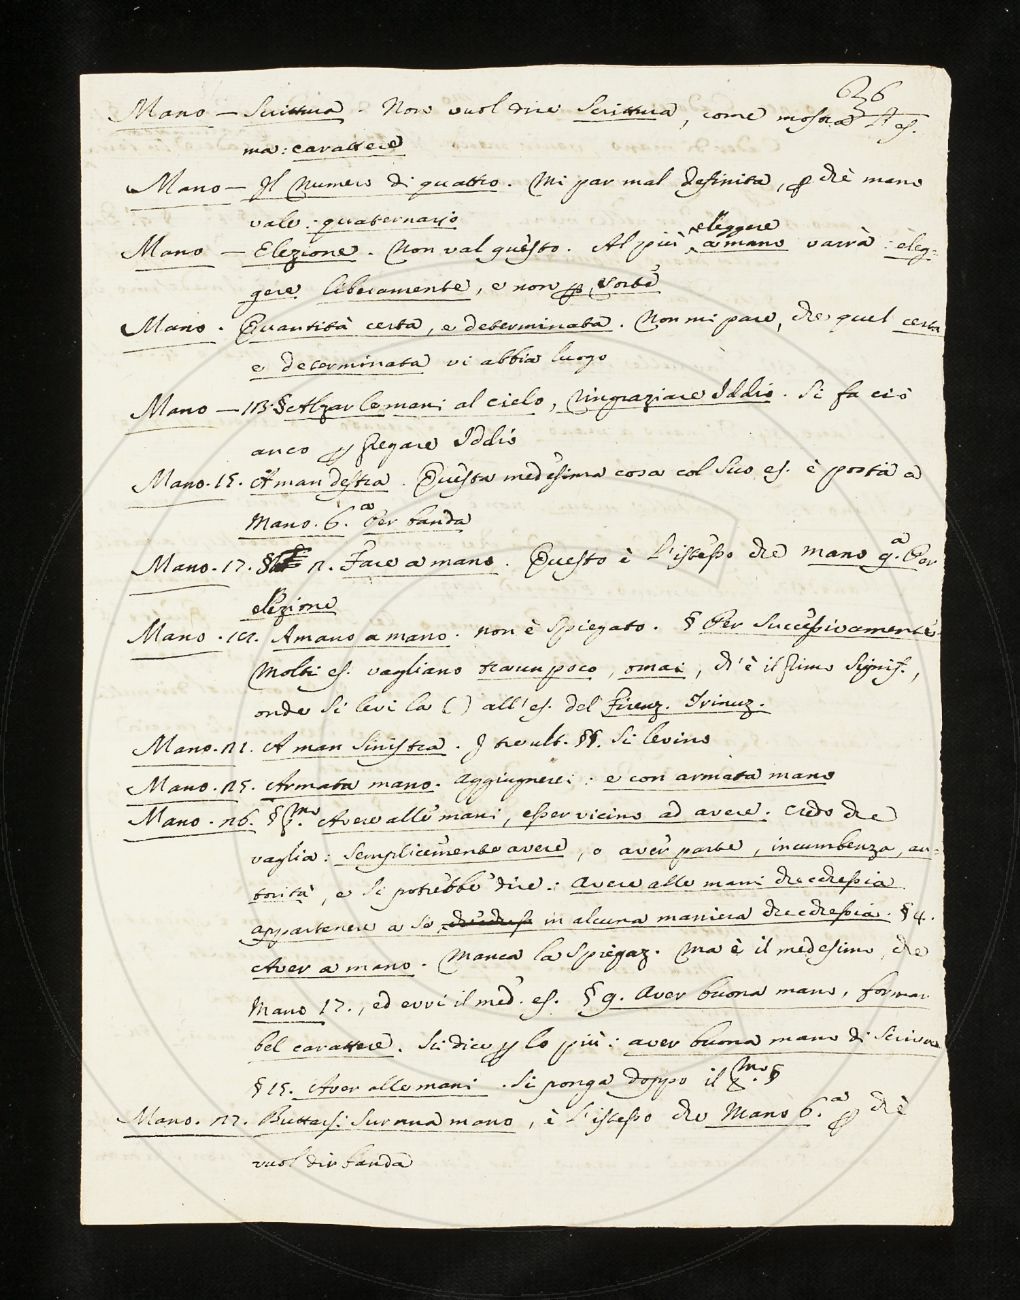 636
Mano — Scrittura. Non vuol dire Scrittura, come mostra l'es.
ma: carattere
Mano — Il numero di quattro. Mi par mal definita, p chè mano
vale: quaternario
eleggere
Mano — Elezione. Non val questo. Al più a mano varrà: eleg-
gere liberamente, e non p sorte
Mano. Quantità certa, e determinata. Non mi pare, che quel certa
e determinata vi abbia luogo
Mano — 113. § Alzar le mani al cielo, ringraziare Iddio. Si fa ciò
anco p pregare Iddio
Mano. 15. A man destra. Questa medesima cosa col suo es. è posta a
Mano. 6.a Per banda
Mano. 17. § 2. Fare a mano. Questo è l'istesso che mano 9.a Per
elezione
Mano. 19. A mano a mano. non è spiegato. § Per successivamente.
Molti es. vagliano tra un poco, omai, ch'è il primo signif.,
onde si levi la ( ) all'es. del Firenz. Trinuz.
Mano. 21. A man sinistra. I tre ult. §§. si levino
Mano. 25. Armata mano. aggiugnerei: e con armata mano
Mano. 26. § pmo. Avere alle mani, esser vicino ad avere. Credo che
vaglia: semplicemente avere, o aver parte, incumbenza, au-
torità, e si potrebbe dire: avere alle mani checchessia
appartenere a se in alcuna maniera checchessia. § 4.
Aver a mano. Manca la spiegaz. Ma è il medesimo, che
Mano 17., ed evvi il med. es. § 9. Aver buona mano, formar
bel carattere. Si dice p lo più: aver buona mano di scrivere
§ 15. Aver alle mani. Si ponga doppo il pmo. §
Mano. 27. Buttarsi su una mano, è l'istesso che Mano 6.a p chè
vuol dir banda